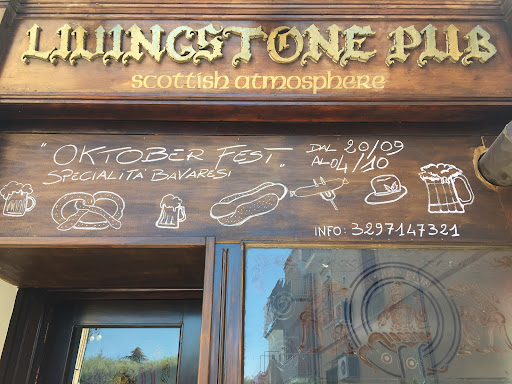 LIVINGSTONE PUB
scottish atmosphere
"OKTOBER FEST"
SPECIALITA' BAVARESI
DAL 20/09
AL 04/10
INFO: 3297147321